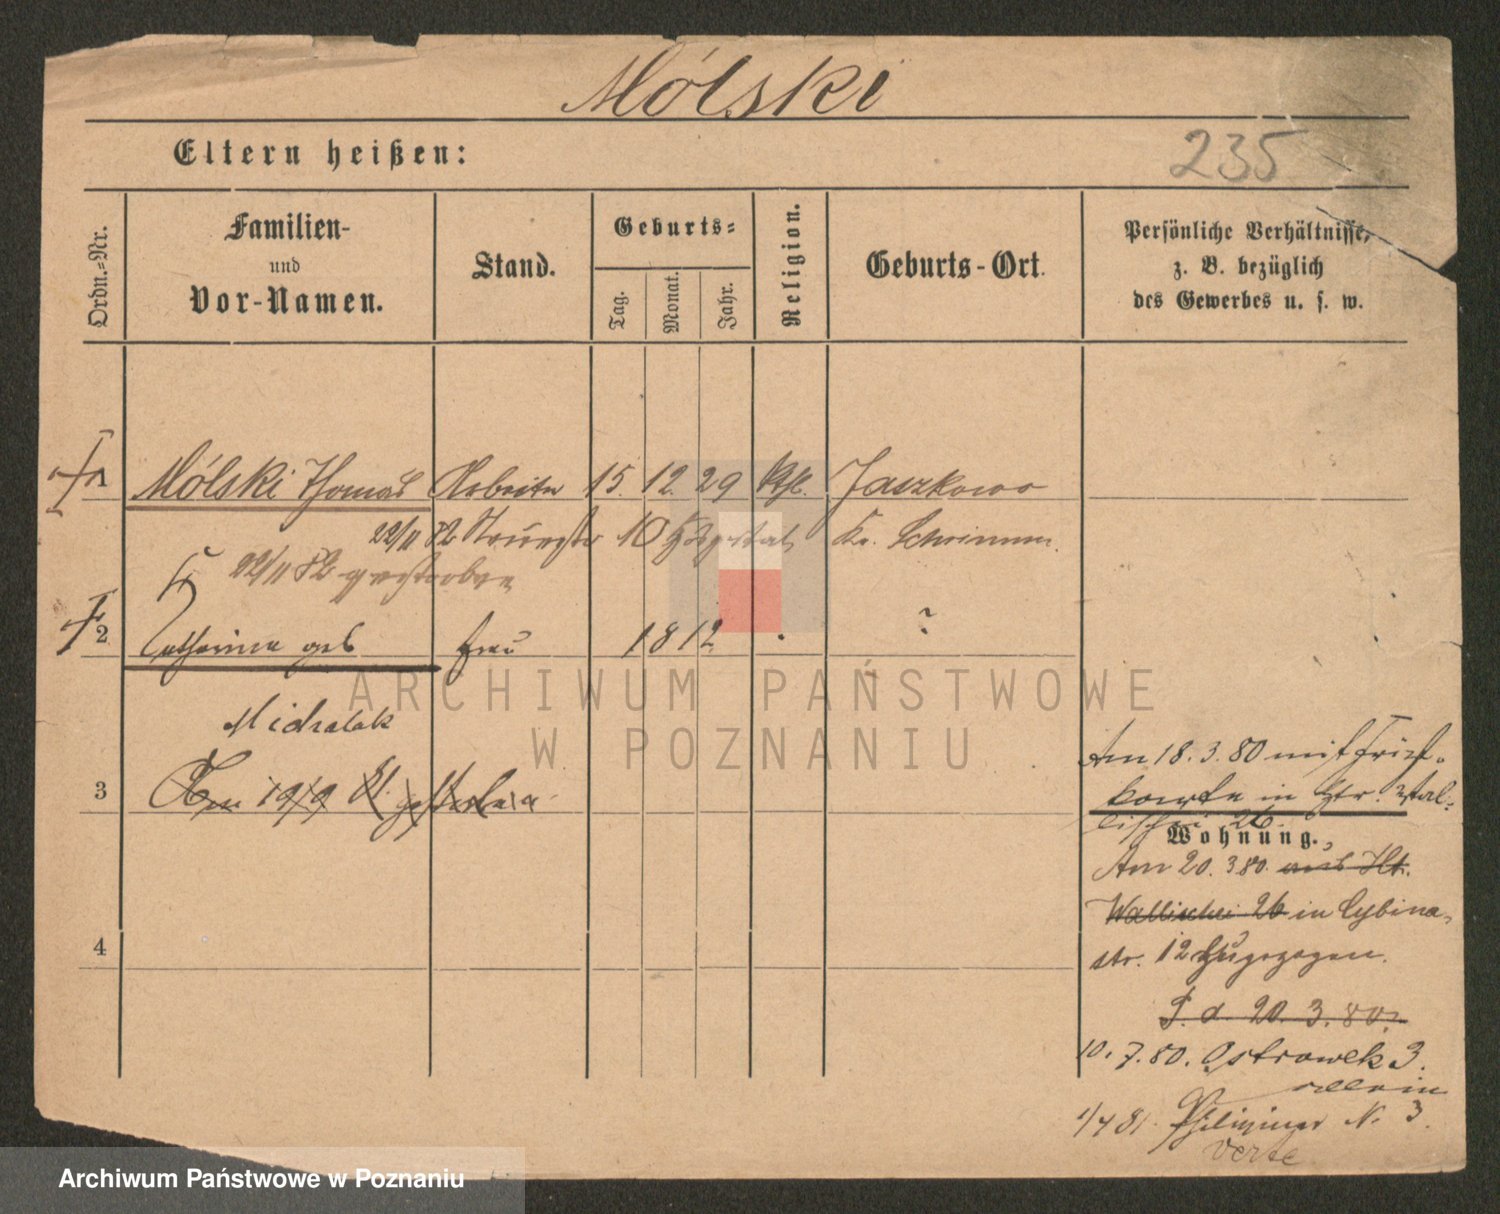 Mólski
235
Eltern heißen:
Ordn.=Nr.
Familien-
und
Vor-Namen.
Stand.
Geburts=
Tag.
Monat.
Jahr.
Religion.
Geburts-Ort.
Persönliche Verhältnisse,
z. B. bezüglich
des Gewerbes u. s. w.
1 Mólski Thomas Arbeiter 15. 12. 29 Kth. Jaszkowo
22/11 82 10 Kr. Schrimm.
22/11 82 gestorben
2 Catharina geb Frau 1812 ?
Midralak
3 Am 19/9 81 gestorben
4
Am 18. 3. 80 mit
karte in Wal=
lischei 26.
Wohnung.
Am 20. 3 80. aus
Wallischei 26 in Cybina-
str. 12 zugezogen.
P. d. 20. 3. 80.
10. 7. 80. Ostrowek 3.
allein
1/4 81. N. 3.
verte
ARCHIWUM PAŃSTWOWE
W POZNANIU
Archiwum Państwowe w Poznaniu